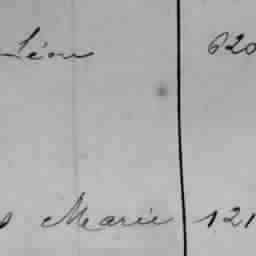 Léon 620
s Marie 121